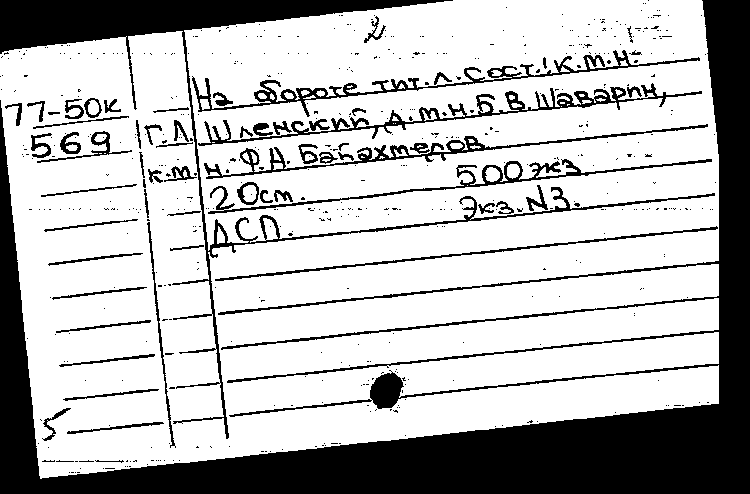 2
77-50к На обороте тит.л. Сост.: к.т.н.
569 Г.Л. Шленский, д.т.н. Б.В. Шаварин,
к.т.н. Ф.А.
20см. 500 экз.
ДСП. Экз. N3.
5